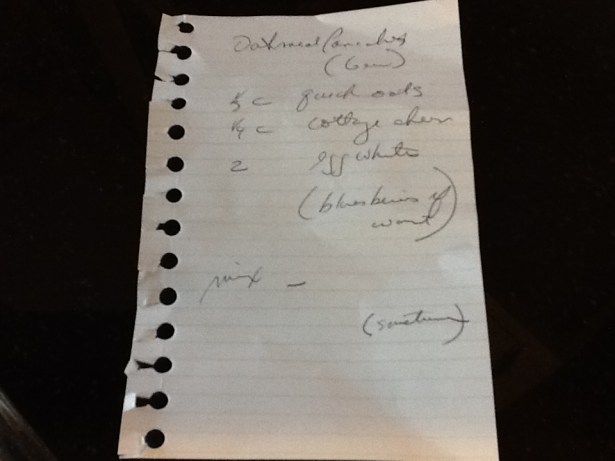 Oatmeal Pancakes
½ c quick oats
¼ c cottage chees
2 egg white
(blueberries if
want)
mix –